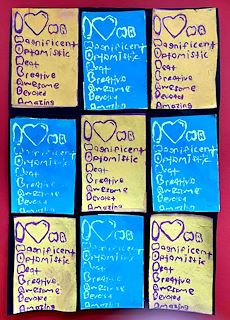 I ♡ MR
Magnificent
Optomistic
Neat
Creative
Awesome
Devoted
Amazing
I ♡ MR
Magnificent
Optomistic
Neat
Creative
Awesome
Devoted
Amazing
I ♡ MR
Magnificent
Optomistic
Neat
Creative
Awesome
Devoted
Amazing
I ♡ MR
Magnificent
Optomistic
Neat
Creative
Awesome
Devoted
Amazing
I ♡ MR
Magnificent
Optomistic
Neat
Creative
Awesome
Devoted
Amazing
I ♡ MR
Magnificent
Optomistic
Neat
Creative
Awesome
Devoted
Amazing
I ♡ MR
Magnificent
Optomistic
Neat
Creative
Awesome
Devoted
Amazing
I ♡ MR
Magnificent
Optomistic
Neat
Creative
Awesome
Devoted
Amazing
I ♡ MR
Magnificent
Optomistic
Neat
Creative
Awesome
Devoted
Amazing